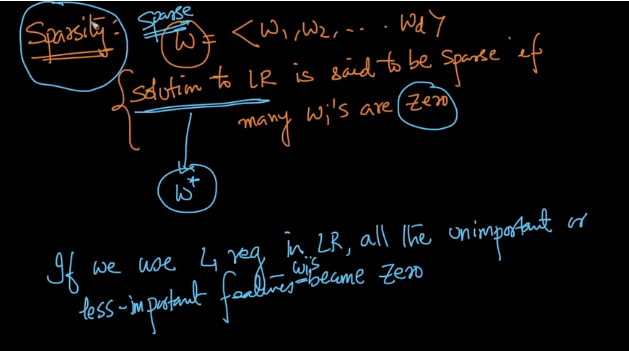 Sparse
Sparsity: W = < W₁, W₂, ... Wd >
solution to LR is said to be sparse if
many wi's are zero
W*
If we use L1 reg in LR, all the unimportant or
wi's
less-important features became zero